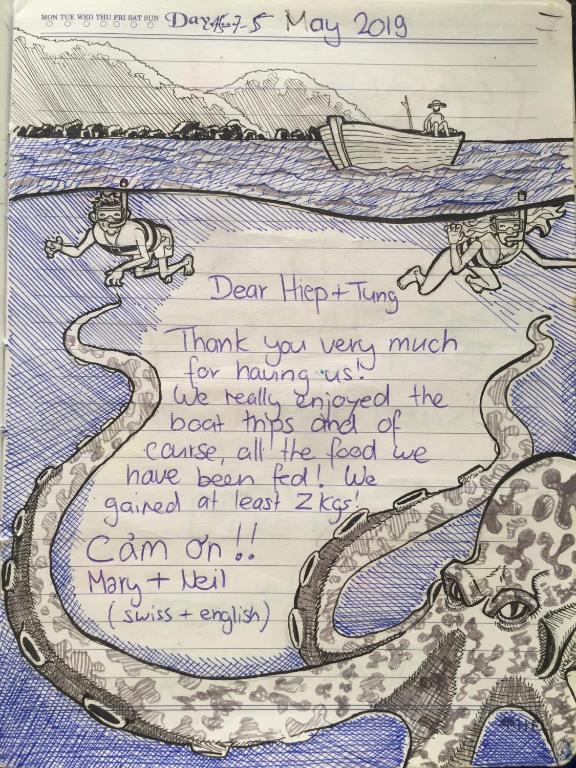 MON TUE WED THU FRI SAT SUN Day May 2019
Dear Hiep + Tung
Thank you very much
for having us!
We really enjoyed the
boat trips and of
course, all the food we
have been fed! We
gained at least 2 kgs!
Cảm ơn!!
Mary + Neil
(swiss + english)